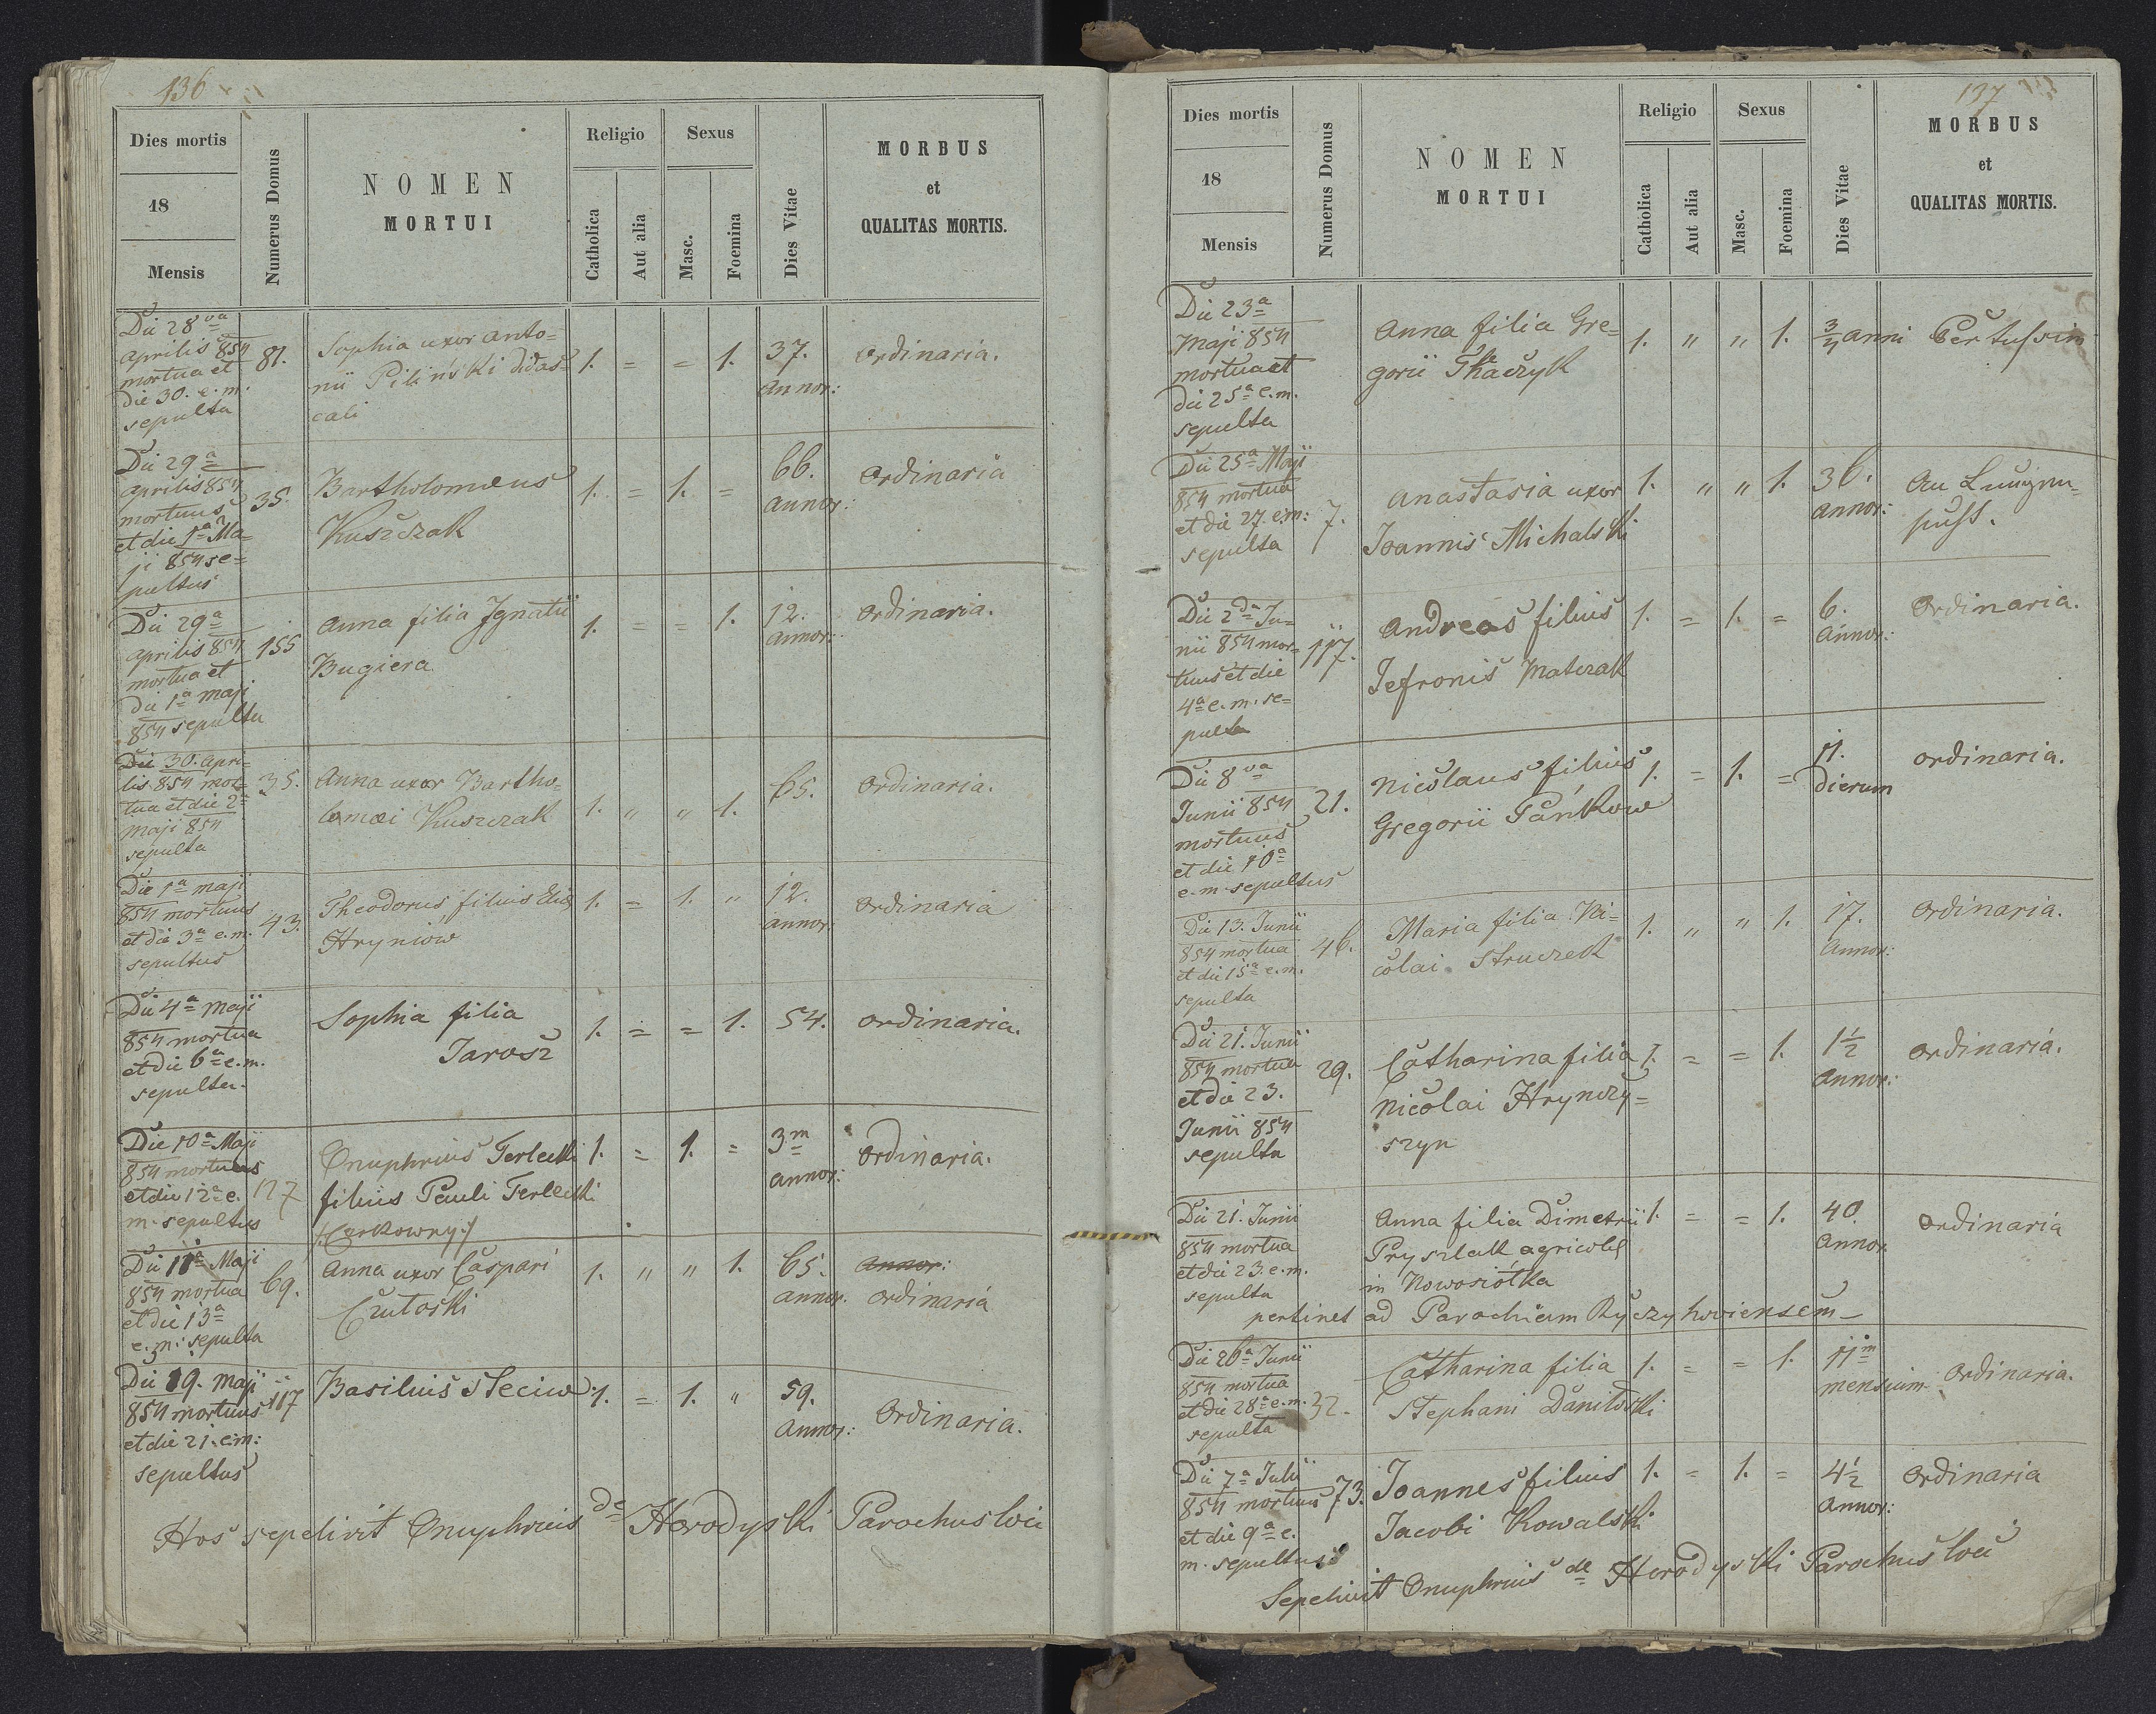 136
Dies mortis
18
Mensis
Numerus Domus
NOMEN
MORTUI
Religio
Catholica
Aut alia
Sexus
Masc.
Foemina
Dies Vitae
MORBUS
et
QUALITAS MORTIS.
Die 28va
aprilis 854
mortua et
die 30. e. m.
sepulta
81.
Sophia uxor Anto=
nii Piliński didas=
cali
1. = = 1.
37.
annor:
ordinaria.
Die 29a
aprilis 854
mortuus
et die 1a Ma=
ji 854 se=
pultus
35.
Bartholomæus
Kuszczak
1. = 1. =
66.
annor:
ordinaria
Die 29a
aprilis 854
mortua et
die 1a maji
854 sepulta
155
Anna filia Ignatii
Bugiera
1. = = 1.
12.
annor:
ordinaria.
Die 30. apri=
lis 854 mor=
tua et die 2a
maji 854
sepulta
35.
Anna uxor Bartho=
lomæi Kuszczak
1. " " 1.
65.
ordinaria.
Die 1a maji
854 mortuus
et die 3a e. m.
sepultus
43.
Theodorus filius Eliæ
Hryniów
1. = 1. "
12.
annor:
ordinaria
Die 4a maji
854 mortua
et die 6a e. m.
sepulta.
Sophia filia
Jarosz
1. = = 1.
54.
ordinaria.
Die 10a Maji
854 mortuus
et die 12a e.
m. sepultus
127
Onuphrius Terlecki
filius Pauli Terlecki
/:Cerkowny:/
1. = 1. =
3m
annor:
ordinaria.
Die 11a Maji
854 mortua
et die 13a
e. m: sepulta
69.
Anna uxor Caspari
Czutoski
1. " " 1.
65.
annor.
annor:
ordinaria
Die 19. maji
854 mortuus
et die 21. e m:
sepultus
117
Basilius Steciw.
1. = 1. "
59.
annor:
ordinaria.
Hos sepelivit Onuphrius de Horodyski Parochus loci
137
Dies mortis
18
Mensis
Numerus Domus
NOMEN
MORTUI
Religio
Catholica
Aut alia
Sexus
Masc.
Foemina
Dies Vitae
MORBUS
et
QUALITAS MORTIS.
Die 23a
Maji 854
mortua et
die 25a e. m.
sepulta
Anna filia Gre=
gorii Tkaczyk
1. " " 1.
3/4 anni
Die 25a Maji
854 mortua
et die 27. e m:
sepulta
7.
Anastasia uxor
Joannis Michalski
1. " " 1.
36.
annor:
Die 2da Ju=
nii 854 mor=
tuus et die
4a e. m. se=
pulta
117.
Andreas filius
Jefronis Matczak
1. = 1. =
6.
annor:
ordinaria.
Die 8va
Junii 854
mortuus
et die 10a
e. m. sepultus
21.
Nicolaus filius
Gregorii Pańkow
1. = 1. =
11.
dierum
ordinaria.
Die 13. Junii
854 mortua
et die 15a e. m.
sepulta
46.
Maria filia Ni=
colai Struczek
1. " " 1.
17.
annor:
ordinaria.
Die 21. Junii
854 mortua
et die 23.
Junii 854
sepulta
29.
Catharina filia
Nicolai Hrynczy=
szyn
1. = = 1.
1 1/2
annor:
ordinaria.
Die 21. Junii
854 mortua
et die 23. e. m.
sepulta
Anna filia Dimetrii
Pryszlak agricolæ
in Nowosiółka
pertinet ad Parochiam Ryczyhoviensem
1. = = 1.
40.
annor.
ordinaria
Die 26a Junii
854 mortua
et die 28a e. m.
sepulta
32.
Catharina filia
Stephani Daniloski
1. = = 1.
11m
mensium
ordinaria.
Die 7a Julii
854 mortuus
et die 9a e.
m. sepultus
73.
Joannes filius
Jacobi Kowalski
1. = 1. =
4 1/2
annor:
ordinaria
Sepelivit Onuphrius de Horodyski Parochus loci